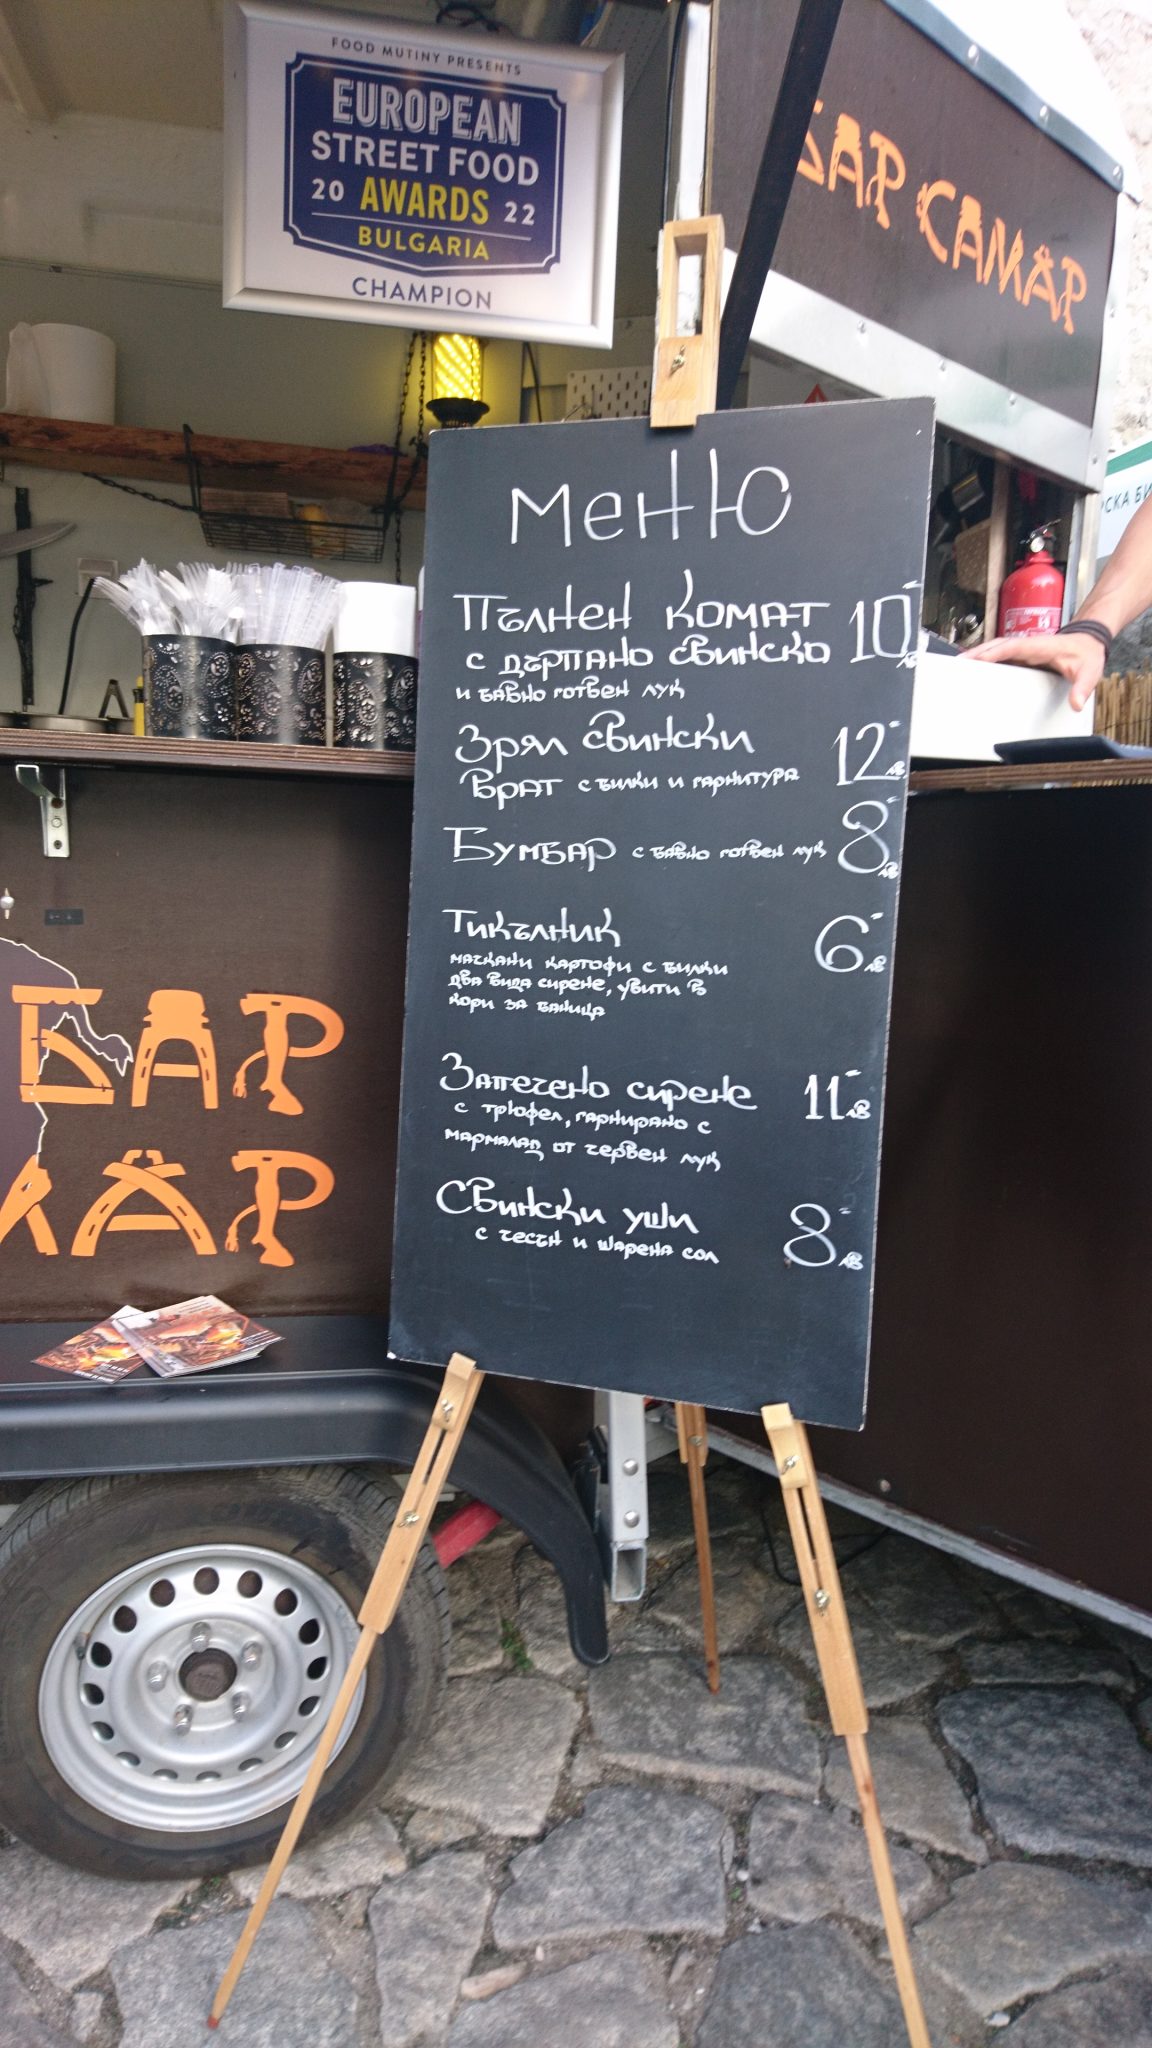 FOOD MUTINY PRESENTS
EUROPEAN
STREET FOOD
20 AWARDS 22
BULGARIA
CHAMPION
БАР САМАР
СКА БИ
Меню
Пълнен комат 10-
с дърпано свинско лв
и бавно готвен лук
Зрял свински 12-
врат с билки и гарнитура лв
Бумбар с бавно готвен лук 8- лв
Тикълник 6- лв
мачкани картофи с билки
два вида сирене, увити в
кори за баница
Запечено сирене 11- лв
с трюфел, гарнирано с
мармалад от червен лук
Свински уши 8- лв
с чесън и шарена сол
БАР
МАР